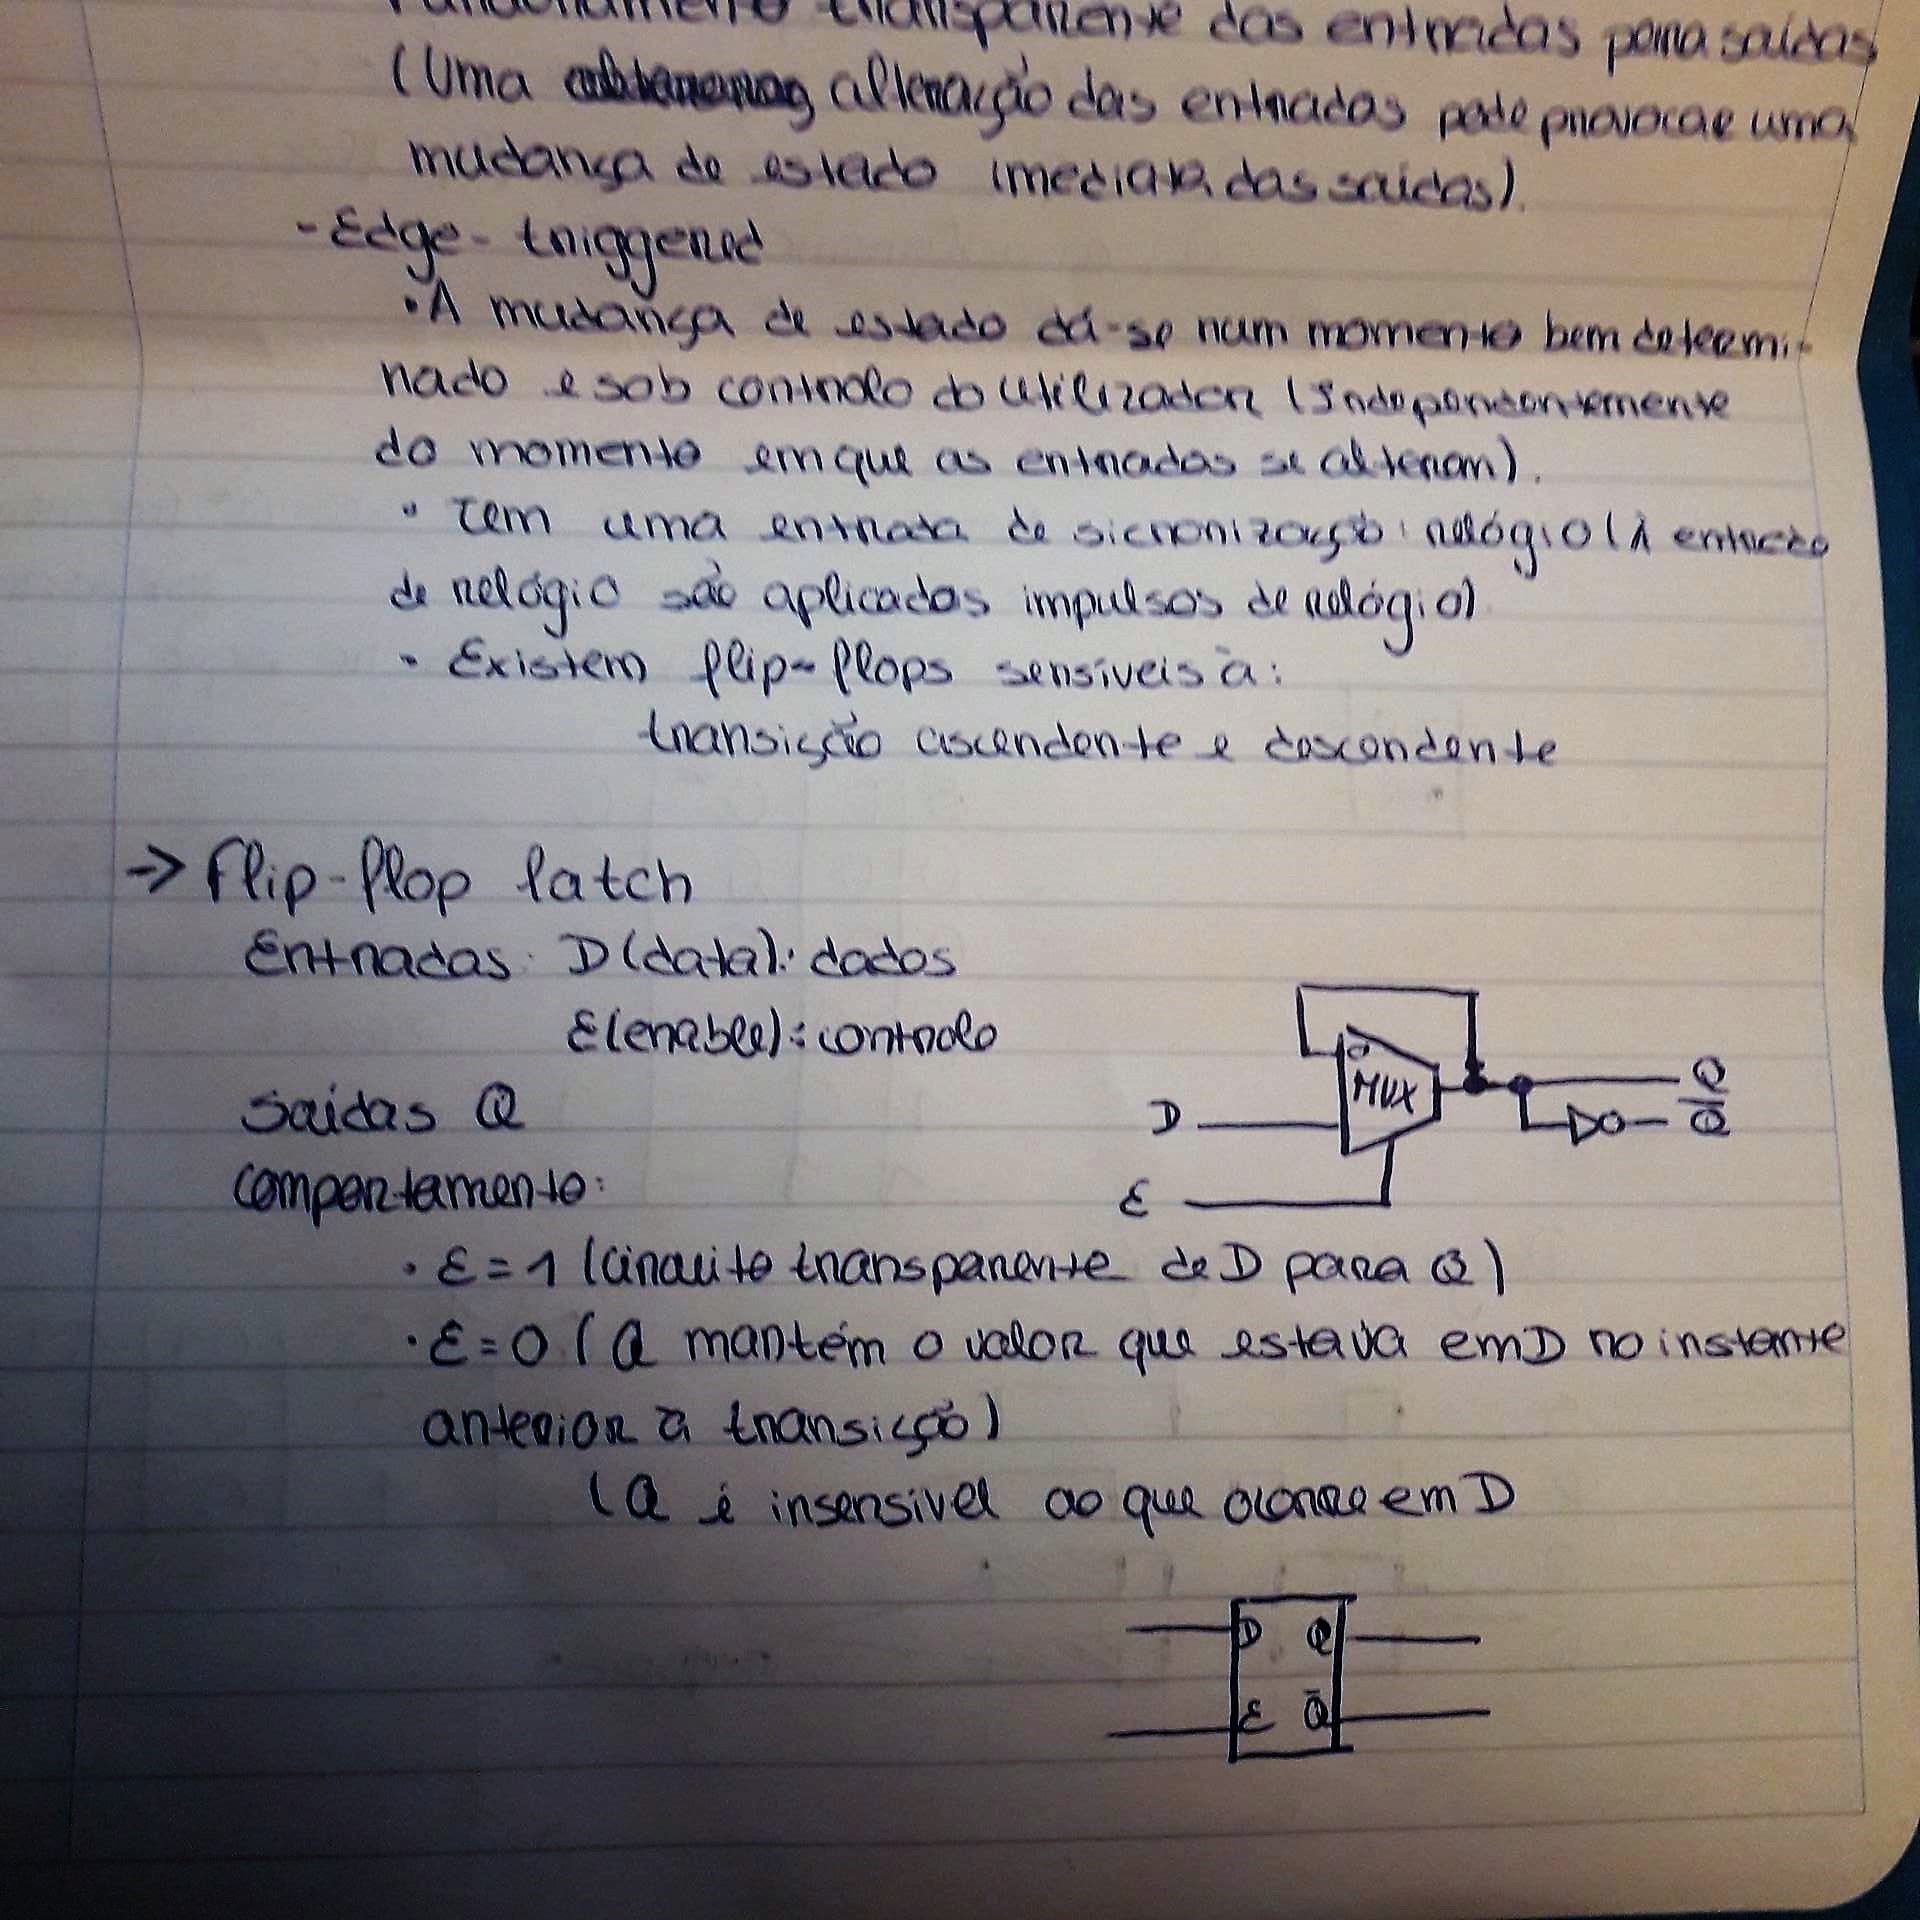 Funcionamento transparente das entradas para saídas
(Uma alteração das entradas pode provocar uma
mudança de estado imediata das saídas).
- Edge-triggered
• A mudança de estado dá-se num momento bem determi-
nado e sob controlo do utilizador (Independentemente
do momento em que as entradas se alteram).
• Tem uma entrada de sicronização: relógio (À entrada
de relógio são aplicados impulsos de relógio)
• Existem flip-flops sensíveis à:
transição ascendente e descendente
→ Flip-flop latch
Entradas: D(data): dados
E(enable): controlo
Saídas Q
Comportamento:
MUX
D
E
Q
Q̅
• E=1 (circuito transparente de D para Q)
• E=0 (Q mantém o valor que estava em D no instante
anterior à transição)
(Q é insensivel ao que ocorre em D
D Q
E Q̅